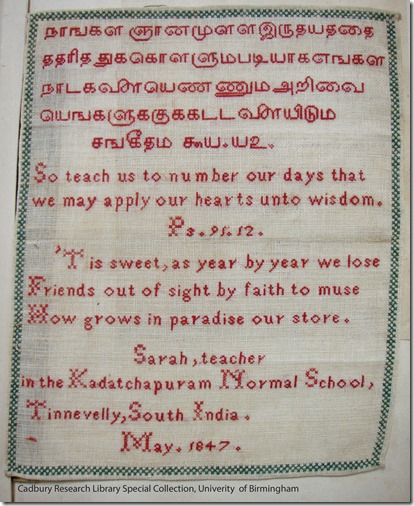 நாஙகள ஞானமுளள இருதயததை
ததரித துககொளளுமபடியாக எஙகள
நாடகளை யெண ணும அறிவை
யெஙகளுககுககடடளையிடும
சஙகீதம ௯௰.௰௨.
So teach us to number our days that
we may apply our hearts unto wisdom.
Ps. 91. 12.
'Tis sweet, as year by year we lose
Friends out of sight by faith to muse
How grows in paradise our store.
Sarah, teacher
in the Kadatchapuram Normal School,
Tinnevelly, South India.
May. 1847.
Cadbury Research Library Special Collection, Univerity of Birmingham